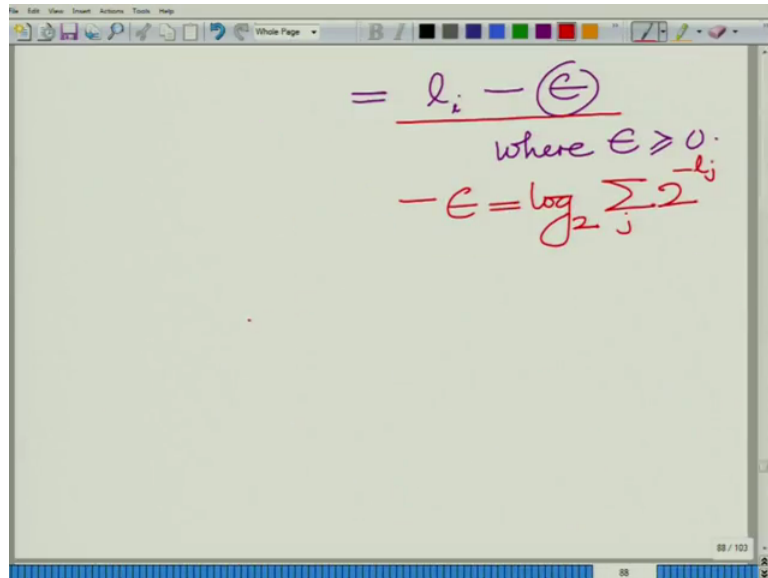 File Edit View Insert Actions Tools Help
Whole Page
B I
= l_i - ϵ
where ϵ ≥ 0.
-ϵ = log_2 ∑_j 2^{-l_j}
88 / 103
88